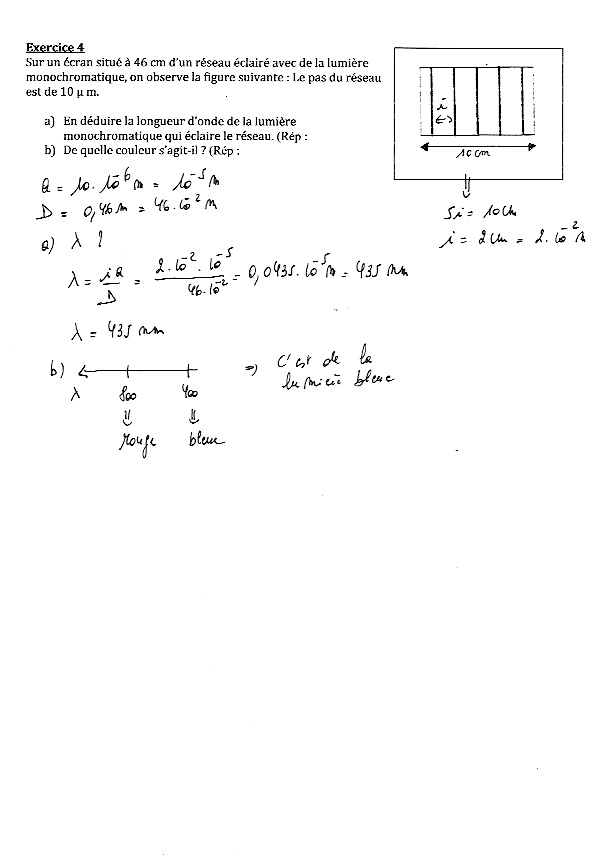 Exercice 4
Sur un écran situé à 46 cm d'un réseau éclairé avec de la lumière
monochromatique, on observe la figure suivante : Le pas du réseau
est de 10 µ m.
i
10 cm
a) En déduire la longueur d'onde de la lumière
monochromatique qui éclaire le réseau. (Rép :
b) De quelle couleur s'agit-il ? (Rép :
a = 10. 10^-6 m = 10^-5 m
D = 0,46 m = 46.10^-2 m
5i = 10cm
i = 2 cm = 2.10^-2 m
a) λ ?
λ = ia/D = 2.10^-2 . 10^-5 / 46.10^-2 = 0,0435.10^-5 m = 435 nm
λ = 435 nm
b) λ 800 400
⇓ ⇓
rouge bleu
⇒ C'est de la
lumière bleue